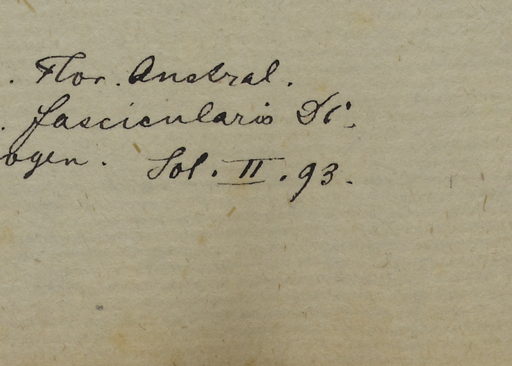 . Flor. Austral.
. fascicularis Di.
ogen. Sol. II. 93.